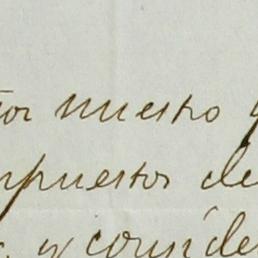 tor nuestro y
mpuestos de
s. y conside